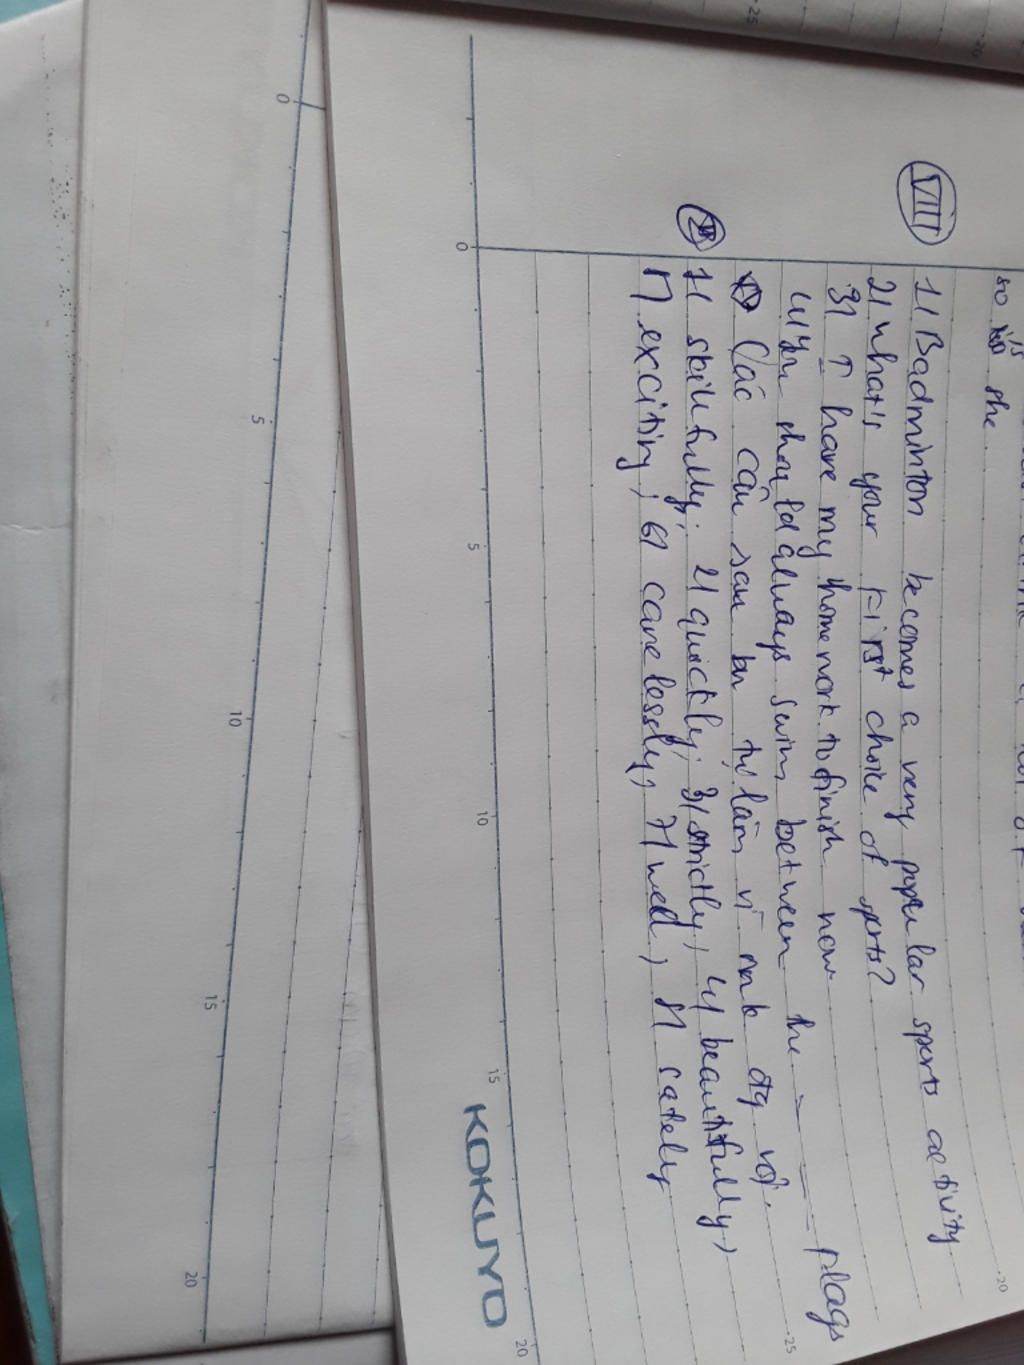 so is she
VIII
1) Badminton becomes a very popular sports activity
2) what's your First choice of sports?
3) I have my homework to finish now
4) You should always swim between the - - - flags
Các câu sau bn tự làm vì mk đg vội.
1) skillfully; 2) quickly; 3) strictly; 4) beautifully;
5) exciting; 6) carelessly; 7) well; 8) safely
KOKUYO
0 5 10 15 20
0 5 10 15 20
25
25
20
20